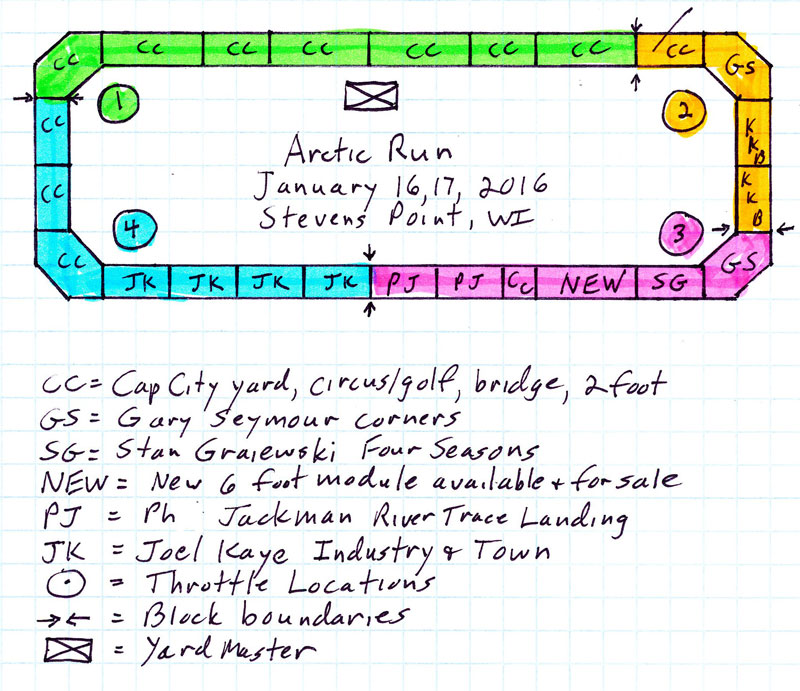 CC CC CC CC CC CC CC CC GS
1 2
CC K K B
Arctic Run
January 16, 17, 2016
Stevens Point, WI
CC K K B
4 3
CC JK JK JK JK PJ PJ CC NEW SG GS
CC = Cap City yard, circus/golf, bridge, 2 foot
GS = Gary Seymour corners
SG = Stan Graiewski Four Seasons
NEW = New 6 foot module available + for sale
PJ = Ph Jackman River Trace Landing
JK = Joel Kaye Industry & Town
= Throttle Locations
= Block boundaries
= Yard Master